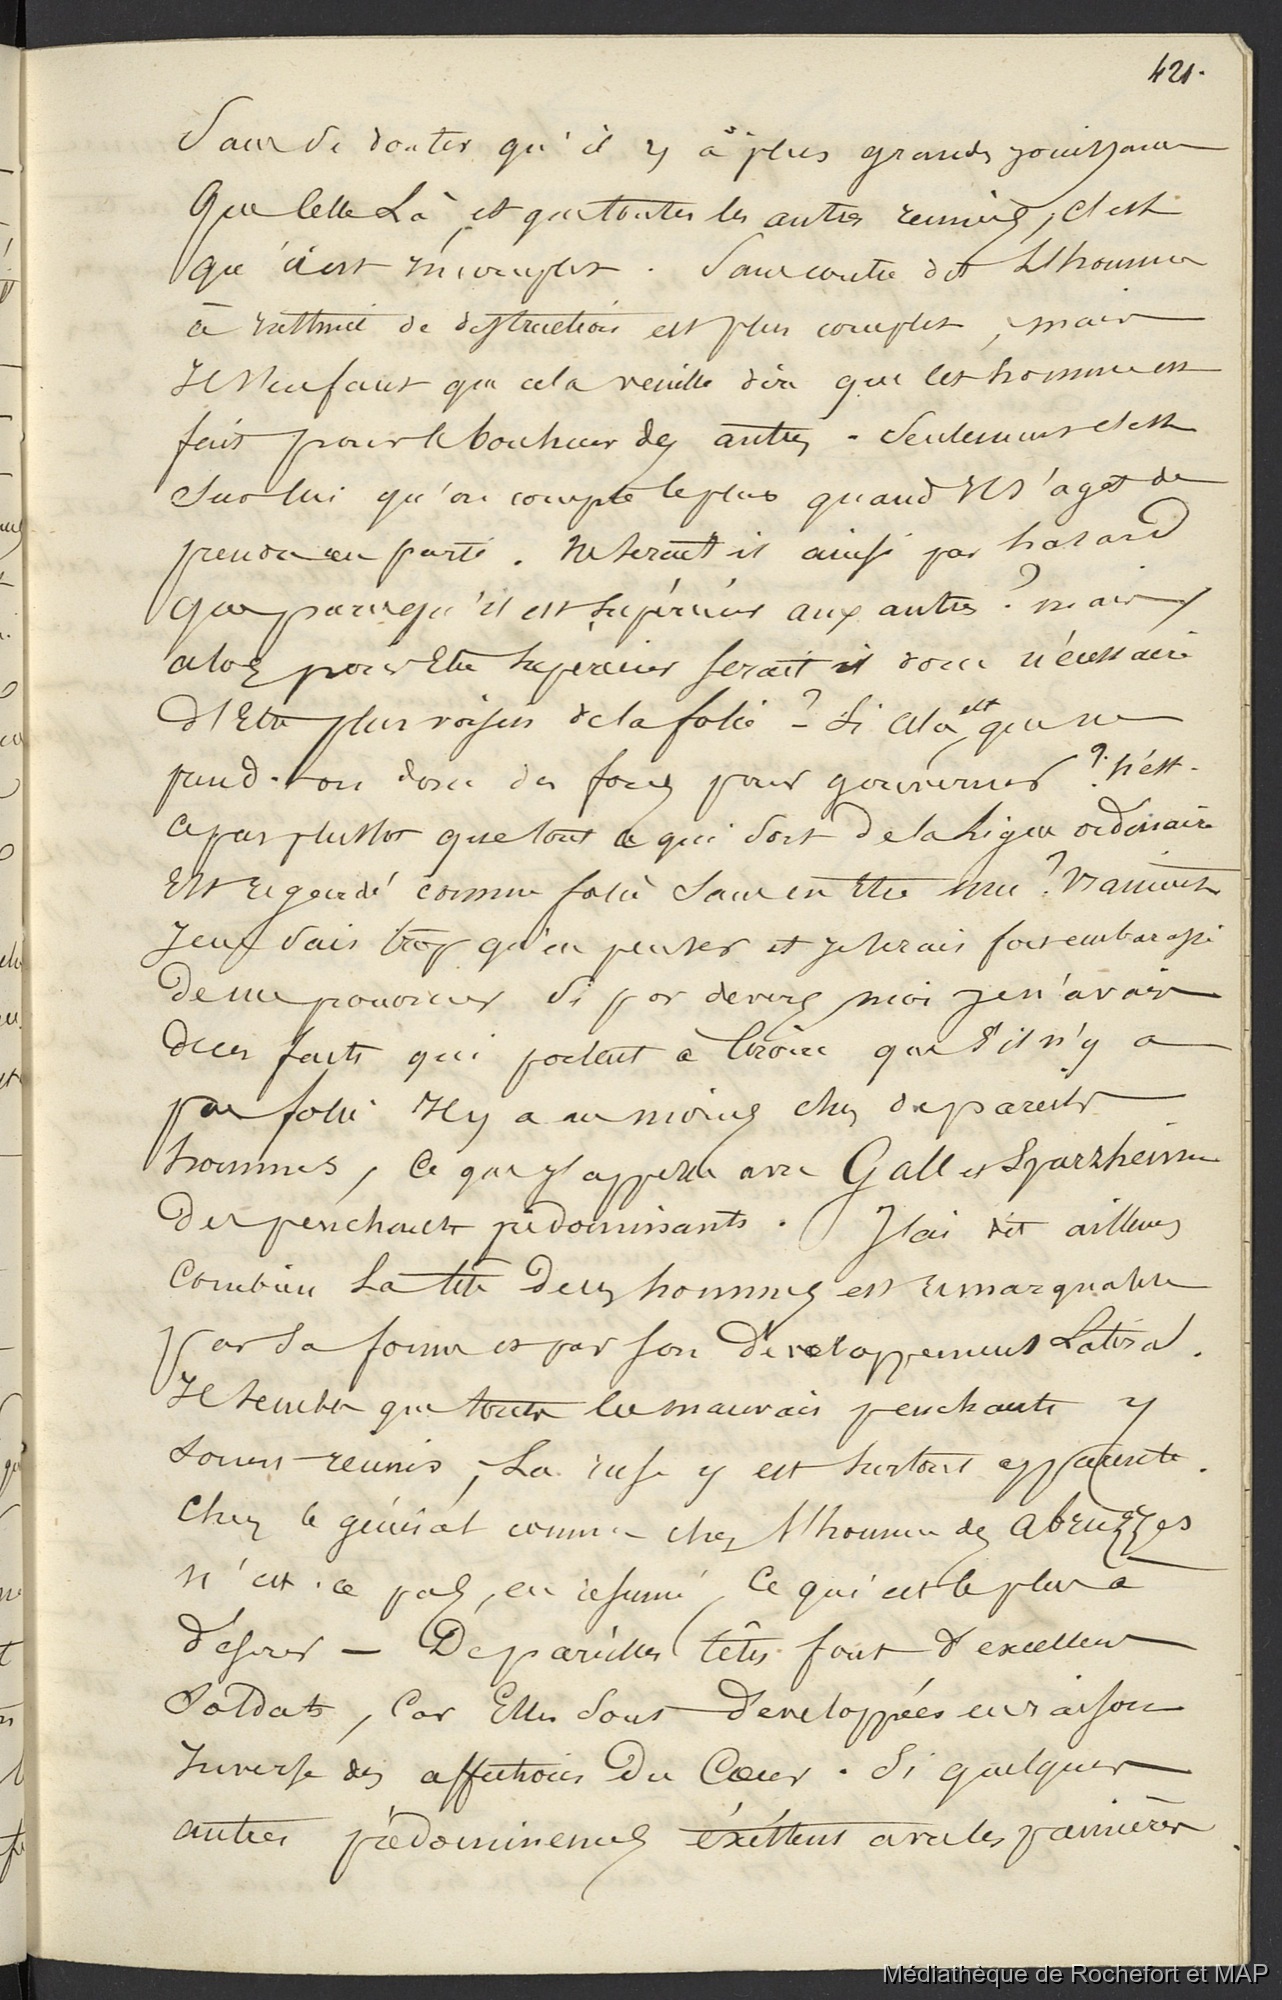 421.
Sans se douter qu'il y a plus grandes jouissances
que celle là, et que toutes les autres reunies, c'est
qu'il est incomplet. Sans contre dit L'homme
à instinct de destruction est plus complet, mais
il s'en faut que cela veuille dire que cet homme est
fait pour le bonheur des autres. Seulement c'est
sur lui qu'on compte le plus quand il s'agit de
prendre un parti. Ne serait il ainsi par hasard
que parcequ'il est supérieur aux autres? mais
alors pour Etre superieur serait il donc nécessaire
d'Etre plus voisin de la folie? - Si cela est que ne
prend-on donc des fous pour gouverner? n'est-
ce pas plustot que tout ce qui sort de la Ligne ordinaire
Est regardé comme folie sans en être une? Vraiment
je ne sais trop qu'en penser et je serais fort embarassé
de me prononcer si par devers moi je n'avais
des faits qui portent à croire que s'il n'y a
pas folie il y a au moins chez de pareils
hommes, ce que j'appelle avec Gall et Sparzheim
des penchants prédominants. J'ai dit ailleurs
combien La tête de ces hommes est remarquable
par sa forme et par son développement Latéral.
Il semble que tous les mauvais penchants y
soient reunis, La ruse y est surtout apparente.
Chez le général comme chez l'homme des abruzzes
n'est-ce pas, en resumé, ce qui est le plus à
désirer — De pareilles têtes font d'excellens
Soldats, Car Elles sont développées en raison
inverse des affections du Cœur. Si quelques
autres prédominences existent avec les premières
Médiathèque de Rochefort et MAP